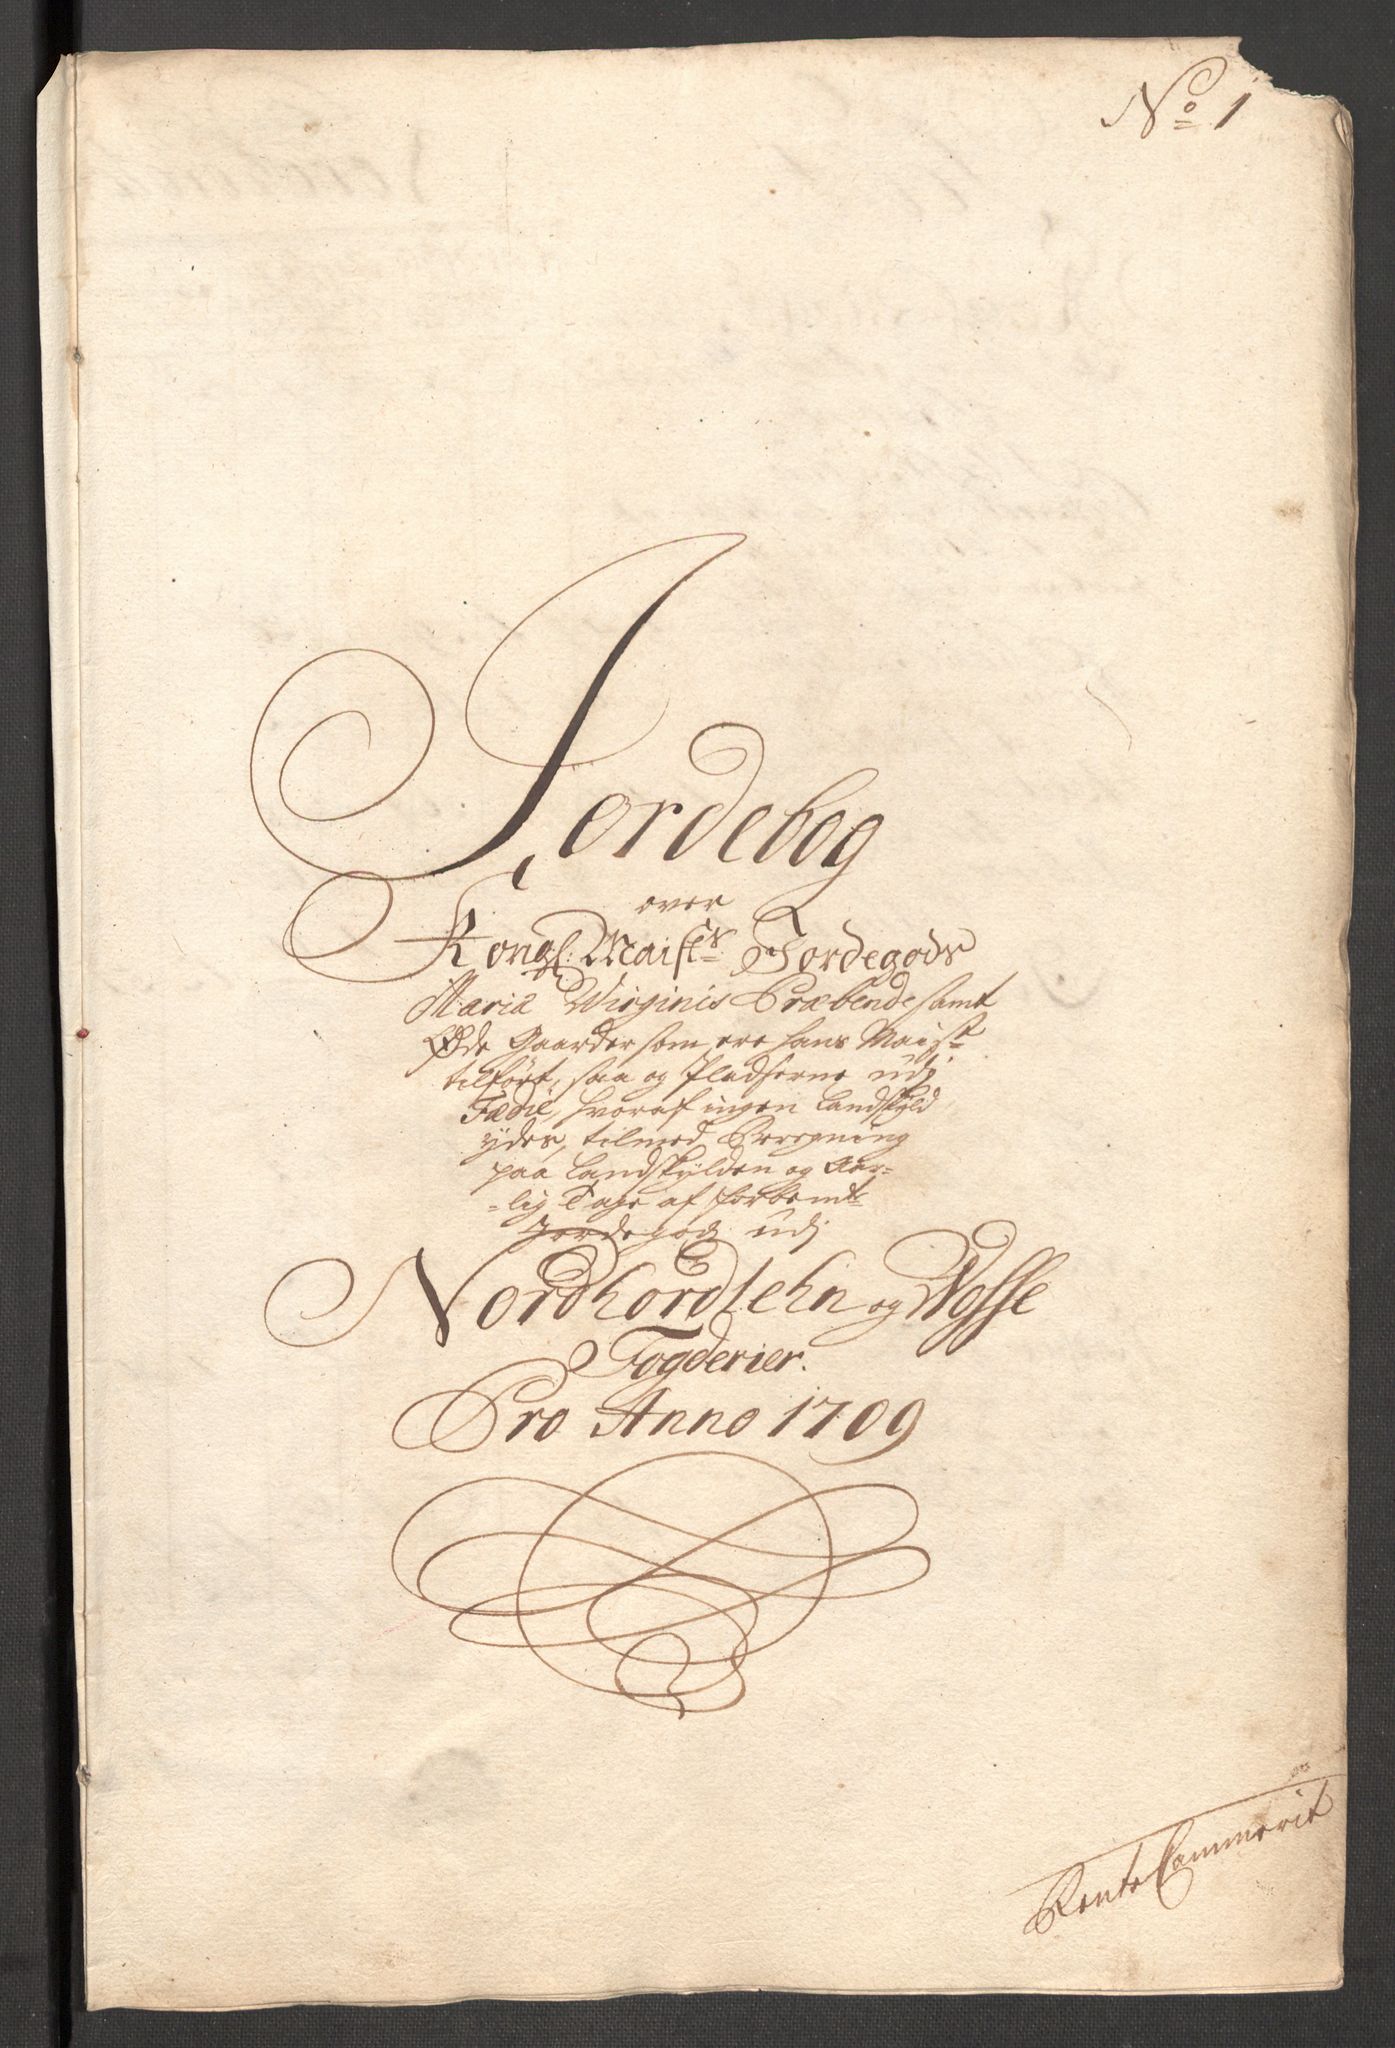 No 1
Jordebog
over
Kongl: Maists Jordegods
Mariæ Wirginis Præbende samt
Øde Gaarder som ere hans Maist
tilført, saa og Pladserne udj
Fædie, hvoraf ingen Landskyld
ydes, tilmed Beregning
paa Landskylden og Aar-
-lig Tage af forbemte
Jordegods udj
Nordhordlehn og Wosse
Fogderier.
Pro Anno 1709
Rente Cammerit